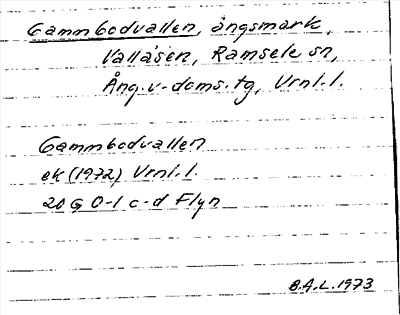 Gammbodvallen, ängsmark,
Vallåsen, Ramsele sn,
Ång.v-doms.tg, Vrnl.l.
Gammbodvallen
ek (1972) Vrnl.l.
20 G 0-1 c-d Flyn
B.A.L. 1973